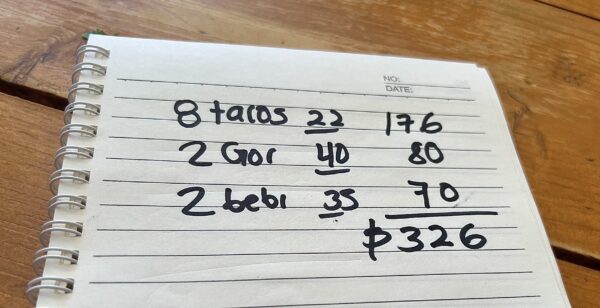 NO:
DATE:
8 tacos 22 176
2 Gor 40 80
2 bebi 35 70
$326